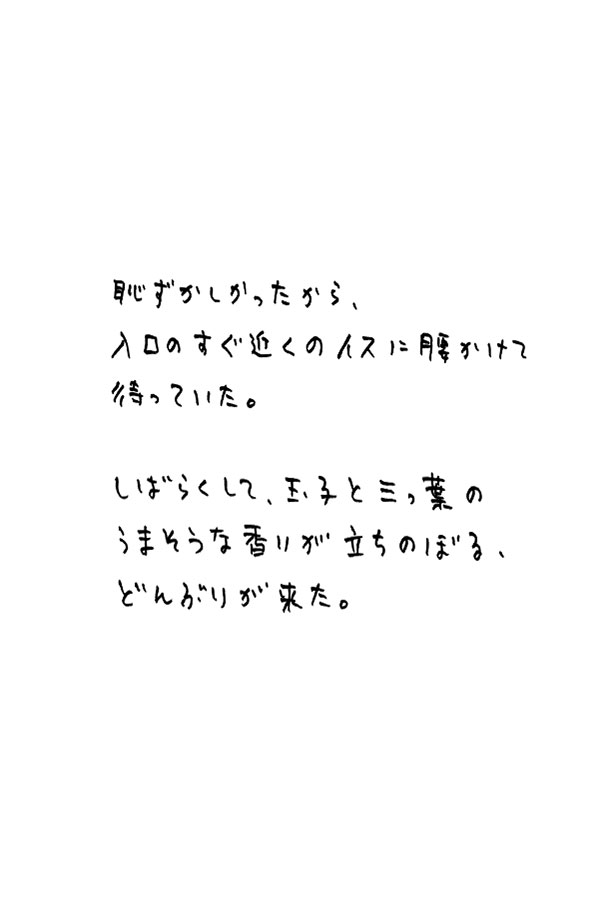 恥ずかしかったから、
入口のすぐ近くのイスに腰かけて
待っていた。
しばらくして、玉子と三っ葉の
うまそうな香りが立ちのぼる、
どんぶりが来た。